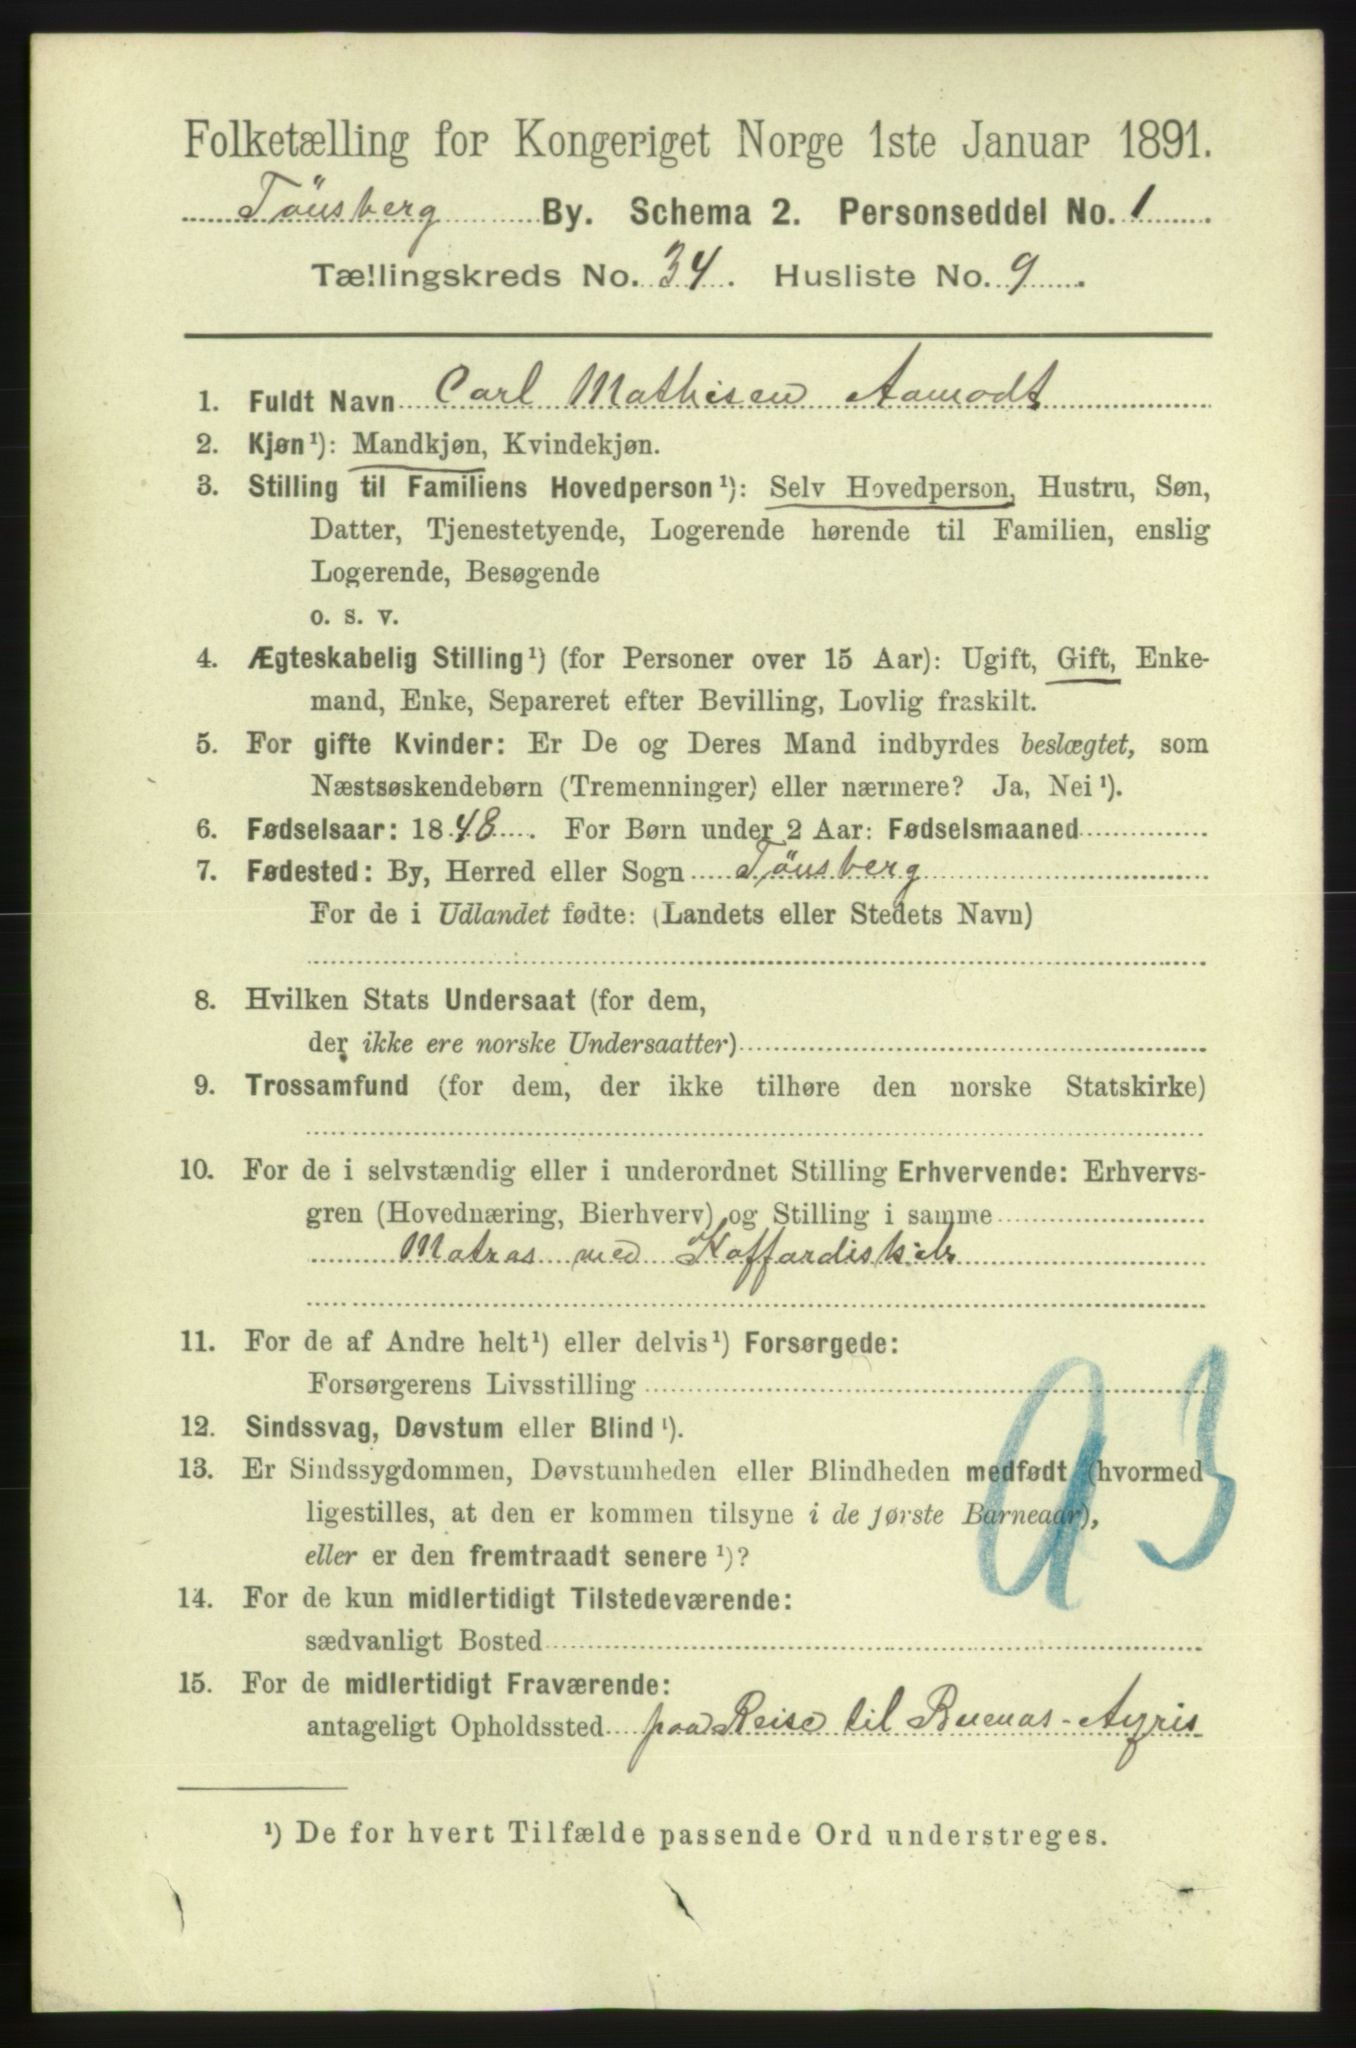 Folketælling for Kongeriget Norge 1ste Januar 1891.
Tönsberg By. Schema 2. Personseddel No. 1
Tællingskreds No. 34. Husliste No. 9.
1. Fuldt Navn Carl Mathisen Aamodt
2. Kjøn¹): Mandkjøn, Kvindekjøn.
3. Stilling til Familiens Hovedperson¹): Selv Hovedperson, Hustru, Søn,
Datter, Tjenestetyende, Logerende hørende til Familien, enslig
Logerende, Besøgende
o. s. v.
4. Ægteskabelig Stilling¹) (for Personer over 15 Aar): Ugift, Gift, Enke-
mand, Enke, Separeret efter Bevilling, Lovlig fraskilt.
5. For gifte Kvinder: Er De og Deres Mand indbyrdes beslægtet, som
Næstsøskendebørn (Tremenninger) eller nærmere? Ja, Nei¹).
6. Fødselsaar: 1848. For Børn under 2 Aar: Fødselsmaaned
7. Fødested: By, Herred eller Sogn Tönsberg
For de i Udlandet fødte: (Landets eller Stedets Navn)
8. Hvilken Stats Undersaat (for dem,
der ikke ere norske Undersaatter)
9. Trossamfund (for dem, der ikke tilhøre den norske Statskirke)
10. For de i selvstændig eller i underordnet Stilling Erhvervende: Erhvervs-
gren (Hovednæring, Bierhverv) og Stilling i samme
Matros med Koffardiskib
11. For de af Andre helt¹) eller delvis¹) Forsørgede:
Forsørgerens Livsstilling
12. Sindssvag, Døvstum eller Blind¹).
13. Er Sindssygdommen, Døvstumheden eller Blindheden medfødt (hvormed
ligestilles, at den er kommen tilsyne i de første Barneaar),
eller er den fremtraadt senere¹)?
14. For de kun midlertidigt Tilstedeværende:
sædvanligt Bosted
15. For de midlertidigt Fraværende:
antageligt Opholdssted paa Reise til Buenas-Ayris
¹) De for hvert Tilfælde passende Ord understreges.